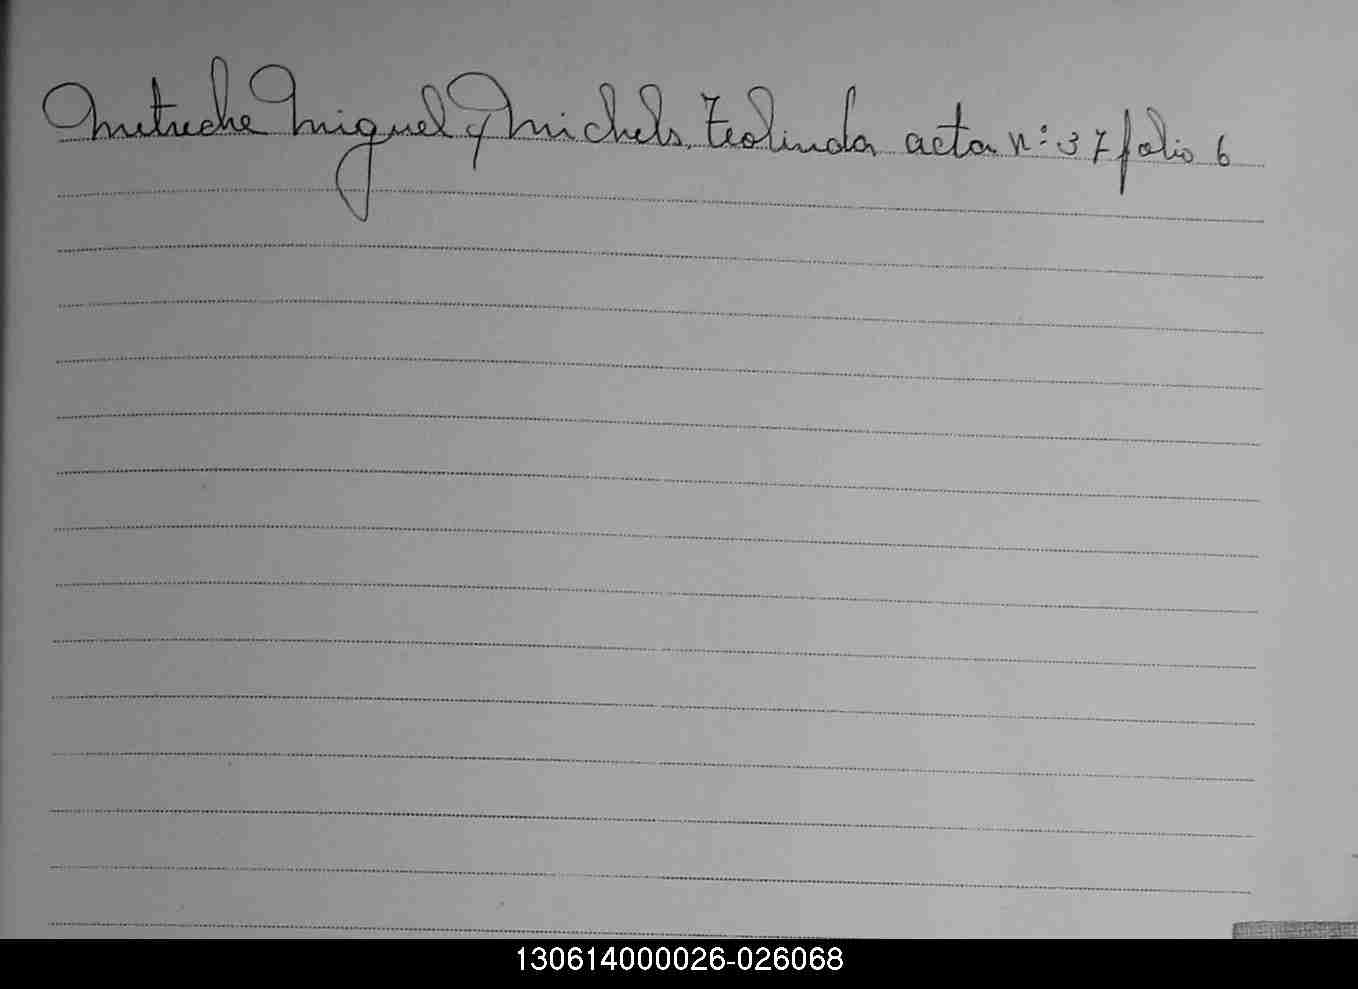 Metreche Miguel y Michels Teolinda acta n: 37 folio 6
130614000026-026068